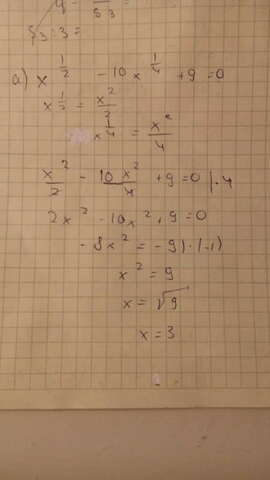 53:3=
a) x^(1/2) - 10x^(1/4) + 9 = 0
x^(1/2) = x²/2
x^(1/4) = x²/4
x²/2 - 10x²/4 + 9 = 0 |·4
2x² - 10x² + 9 = 0
- 8x² = -9 | · (-1)
x² = 9
x = √9
x = 3